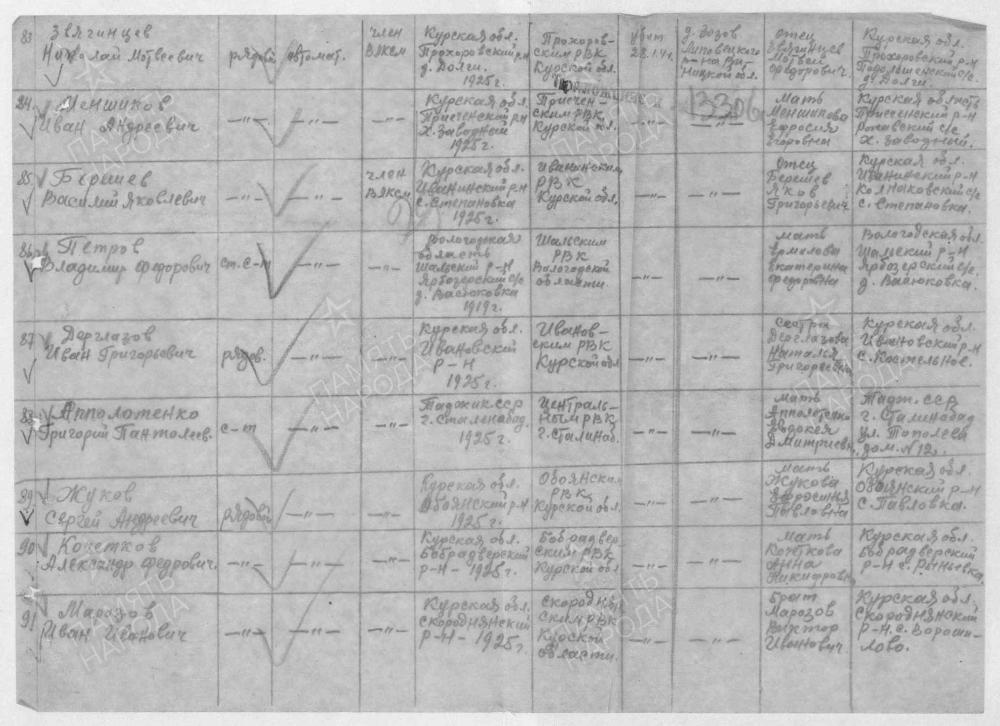 83 Звягинцев
Николай Мотвеевич
рядовой
автомат.
член
ВЛКСМ
Курская обл.
Прохоровский р-н
д. Долги.
1925 г.
Прохоров-
ским РВК
Курской обл.
убит
28.1.44.
д. Розов
Липовецкого
р-на Ви-
ницкой обл.
отец
Звягинцев
Матвей
Федорович.
Курская обл.
Прохоровский р-н
д. Долги.
84. Меншиков
Иван Андреевич
—"—
—"—
Курская обл.
Присченский р-н
Х. Заводный
1925 г.
Присчен-
ским РВК
Курской обл.
—"—
13306
—"—
Мать
Меншикова
Ефросия
Егоровна
Курская область
Присченский р-н
с/с
Х. Заводный.
85. Бершев
Василий Яковлевич
—"—
—"—
член
ВЛКСМ
Курская обл.
Иванинский р-н
с. Степановка
1925 г.
Иванинским
РВК
Курской обл.
—"—
—"—
отец
Берешев
Яков
Григорьевич
Курская обл.
Иванинский р-н
с/с
с. Степановка.
86. Петров
Владимир Федорович
ст. с-т
—"—
—"—
Вологодская
область
Шальский р-н
Ярбозерский с/с
д. Васюковка
1919 г.
Шальским
РВК
Вологодской
области.
—"—
—"—
мать
Ермолова
Екатерина
Федоровна
Вологодская обл.
Шальский р-н
Ярбозерский с/с.
д. Васюковка.
87 Дерглазов
Иван Григорьевич
рядов.
—"—
—"—
Курская обл.
Ивановский
р-н
1925 г.
Иванов-
ским РВК
Курской обл
—"—
—"—
сестра
Дерглазова
Наталья
Григорьевна
Курская обл.
Ивановский р-н
с. Костельное.
88 Апполотенко
Григорий Пантолеев.
с-т
—"—
—"—
Таджик. ССР
г. Сталенабад.
1925 г.
Централь-
ным РВК
г. Сталинаб.
—"—
—"—
мать
Апполотенко
Евдокея
Дмитриевн.
Тадж. ССР
г. Сталинабад
ул. Тополева
дом. N 12.
89 Жуков
Сергей Андреевич
рядовой
—"—
—"—
Курская обл.
Обоянский р-н
1925 г.
Обоянским
РВК
Курской обл.
—"—
—"—
мать
Жукова
Ефросиния
Павловна
Курская обл.
Обоянский р-н
с. Павловка.
90 Кочетков
Александр Федрович.
—"—
—"—
—"—
Курская обл.
Бобрадверский
р-н - 1925 г.
Бобрадвер
ским РВК
Курской обл
—"—
—"—
мать
Кочеткова
Анна
Никифровн.
Курская обл.
Бобрадверский
91 Марозов
Иван Иванович
—"—
—"—
—"—
Курская обл.
Скороднянский
р-н - 1925 г.
Скороднян
ским РВК
Курской
области.
—"—
—"—
брат
Марозов
Виктор
Иванович.
Курская обл.
Скороднянский
р-н. с. Вороши-
лово.
ПАМЯТЬ
НАРОДА